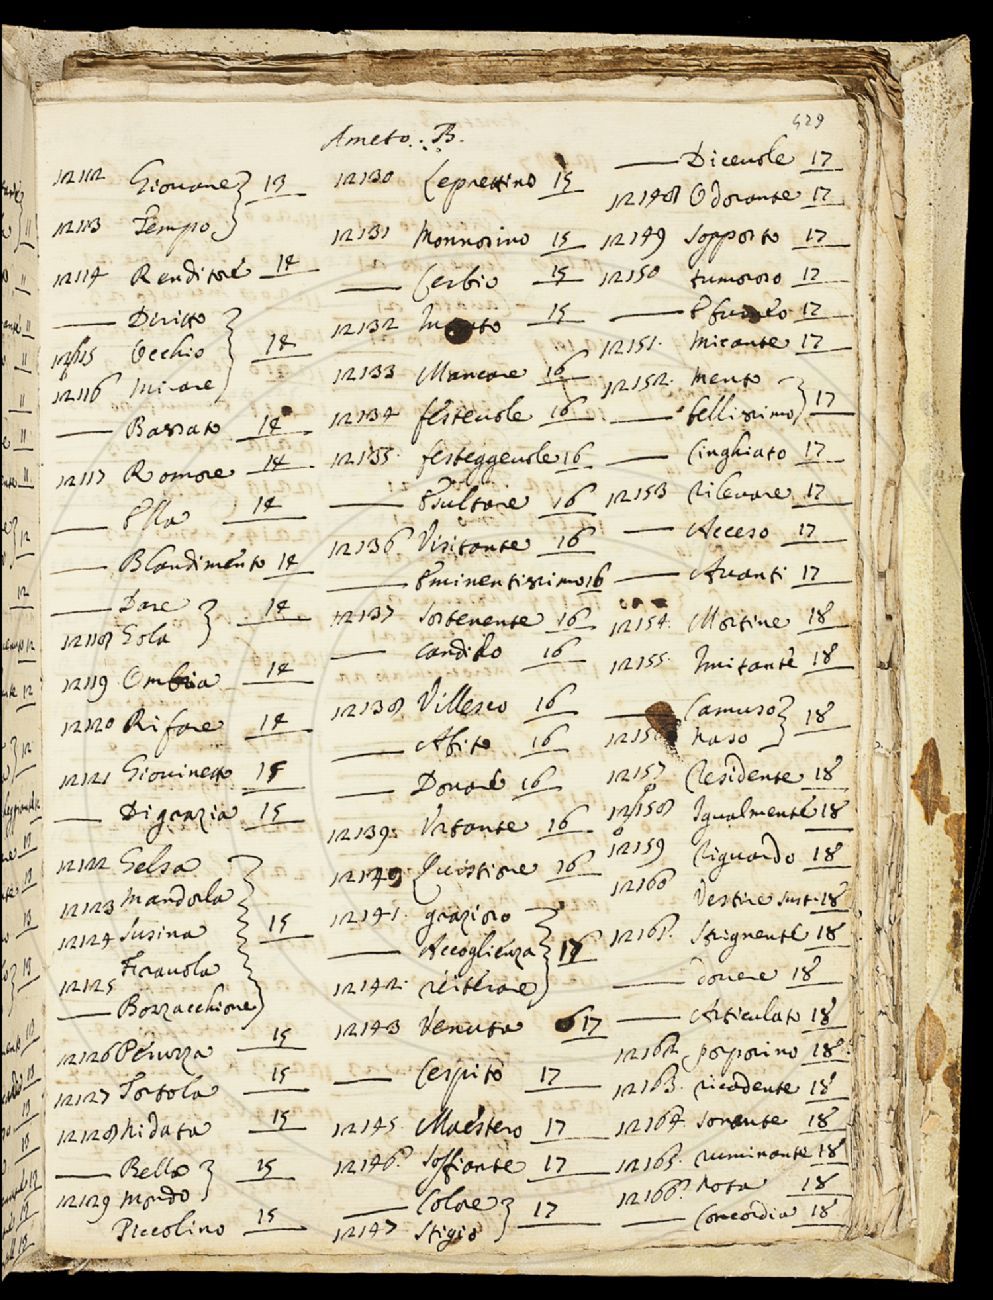 429
Ameto. B.
12112 Giovane 13
12113 Tempo
12114 Renditore 14
Diritto
12115 Occhio 14
12116 Mirare
Bassato 14
12117 Romore 14
Ella 14
Blandimento 14
Dare 14
12118 Gola
12119 Ombra 14
12120 Rifare 14
12121 Giovinetto 15
Di grazia 15
12122 Gelsa
12123 Mandorla
12124 Susina 15
Fravola
12125
Bozzacchione
12126 Peruzza 15
12127 Tortola 15
12128 Nidata 15
Bello 15
12129 Mondo
Piccolino 15
12130 Leprettino 15
12131 Monnosino 15
Cerbio 15
12132 15
12133 Mancare 16
12134 festevole 16
12135. festeggevole 16
Esultare 16
12136 Visitante 16
Eminentissimo 16
12137 Sostenente 16
candido 16
12138 Villesco 16
Abito 16
Donare 16
12139. Vrtante 16
12140 Quistione 16
12141. grazioso
Accoglienza 16
12142. reiterare
12143 Venuta 17
Cespito 17
12145 Maestero 17
12146 Soffiante 17
Colore 17
12147 Stigio
Dicevole 17
12148 Odorante 17
12149 Sopposto 17
12150 tumoroso 17
17
12151. Micante 17
12152. Mento 17
bellissimo
Cinghiato 17
12153 Rilevare 17
Acceso 17
Avanti 17
12154. Mortine 18
12155. Imitante 18
Camuso 18
Naso
12157 Residente 18
12158 Igualmente 18
12159 Riguardo 18
12160 Vestire sust. 18
12161. Strignente 18
18
Articulato 18
12162 porporino 18
12163. ricadente 18
12164 Sonante 18
12165. ruminante 18
12166 Nota 18
Concordia 18